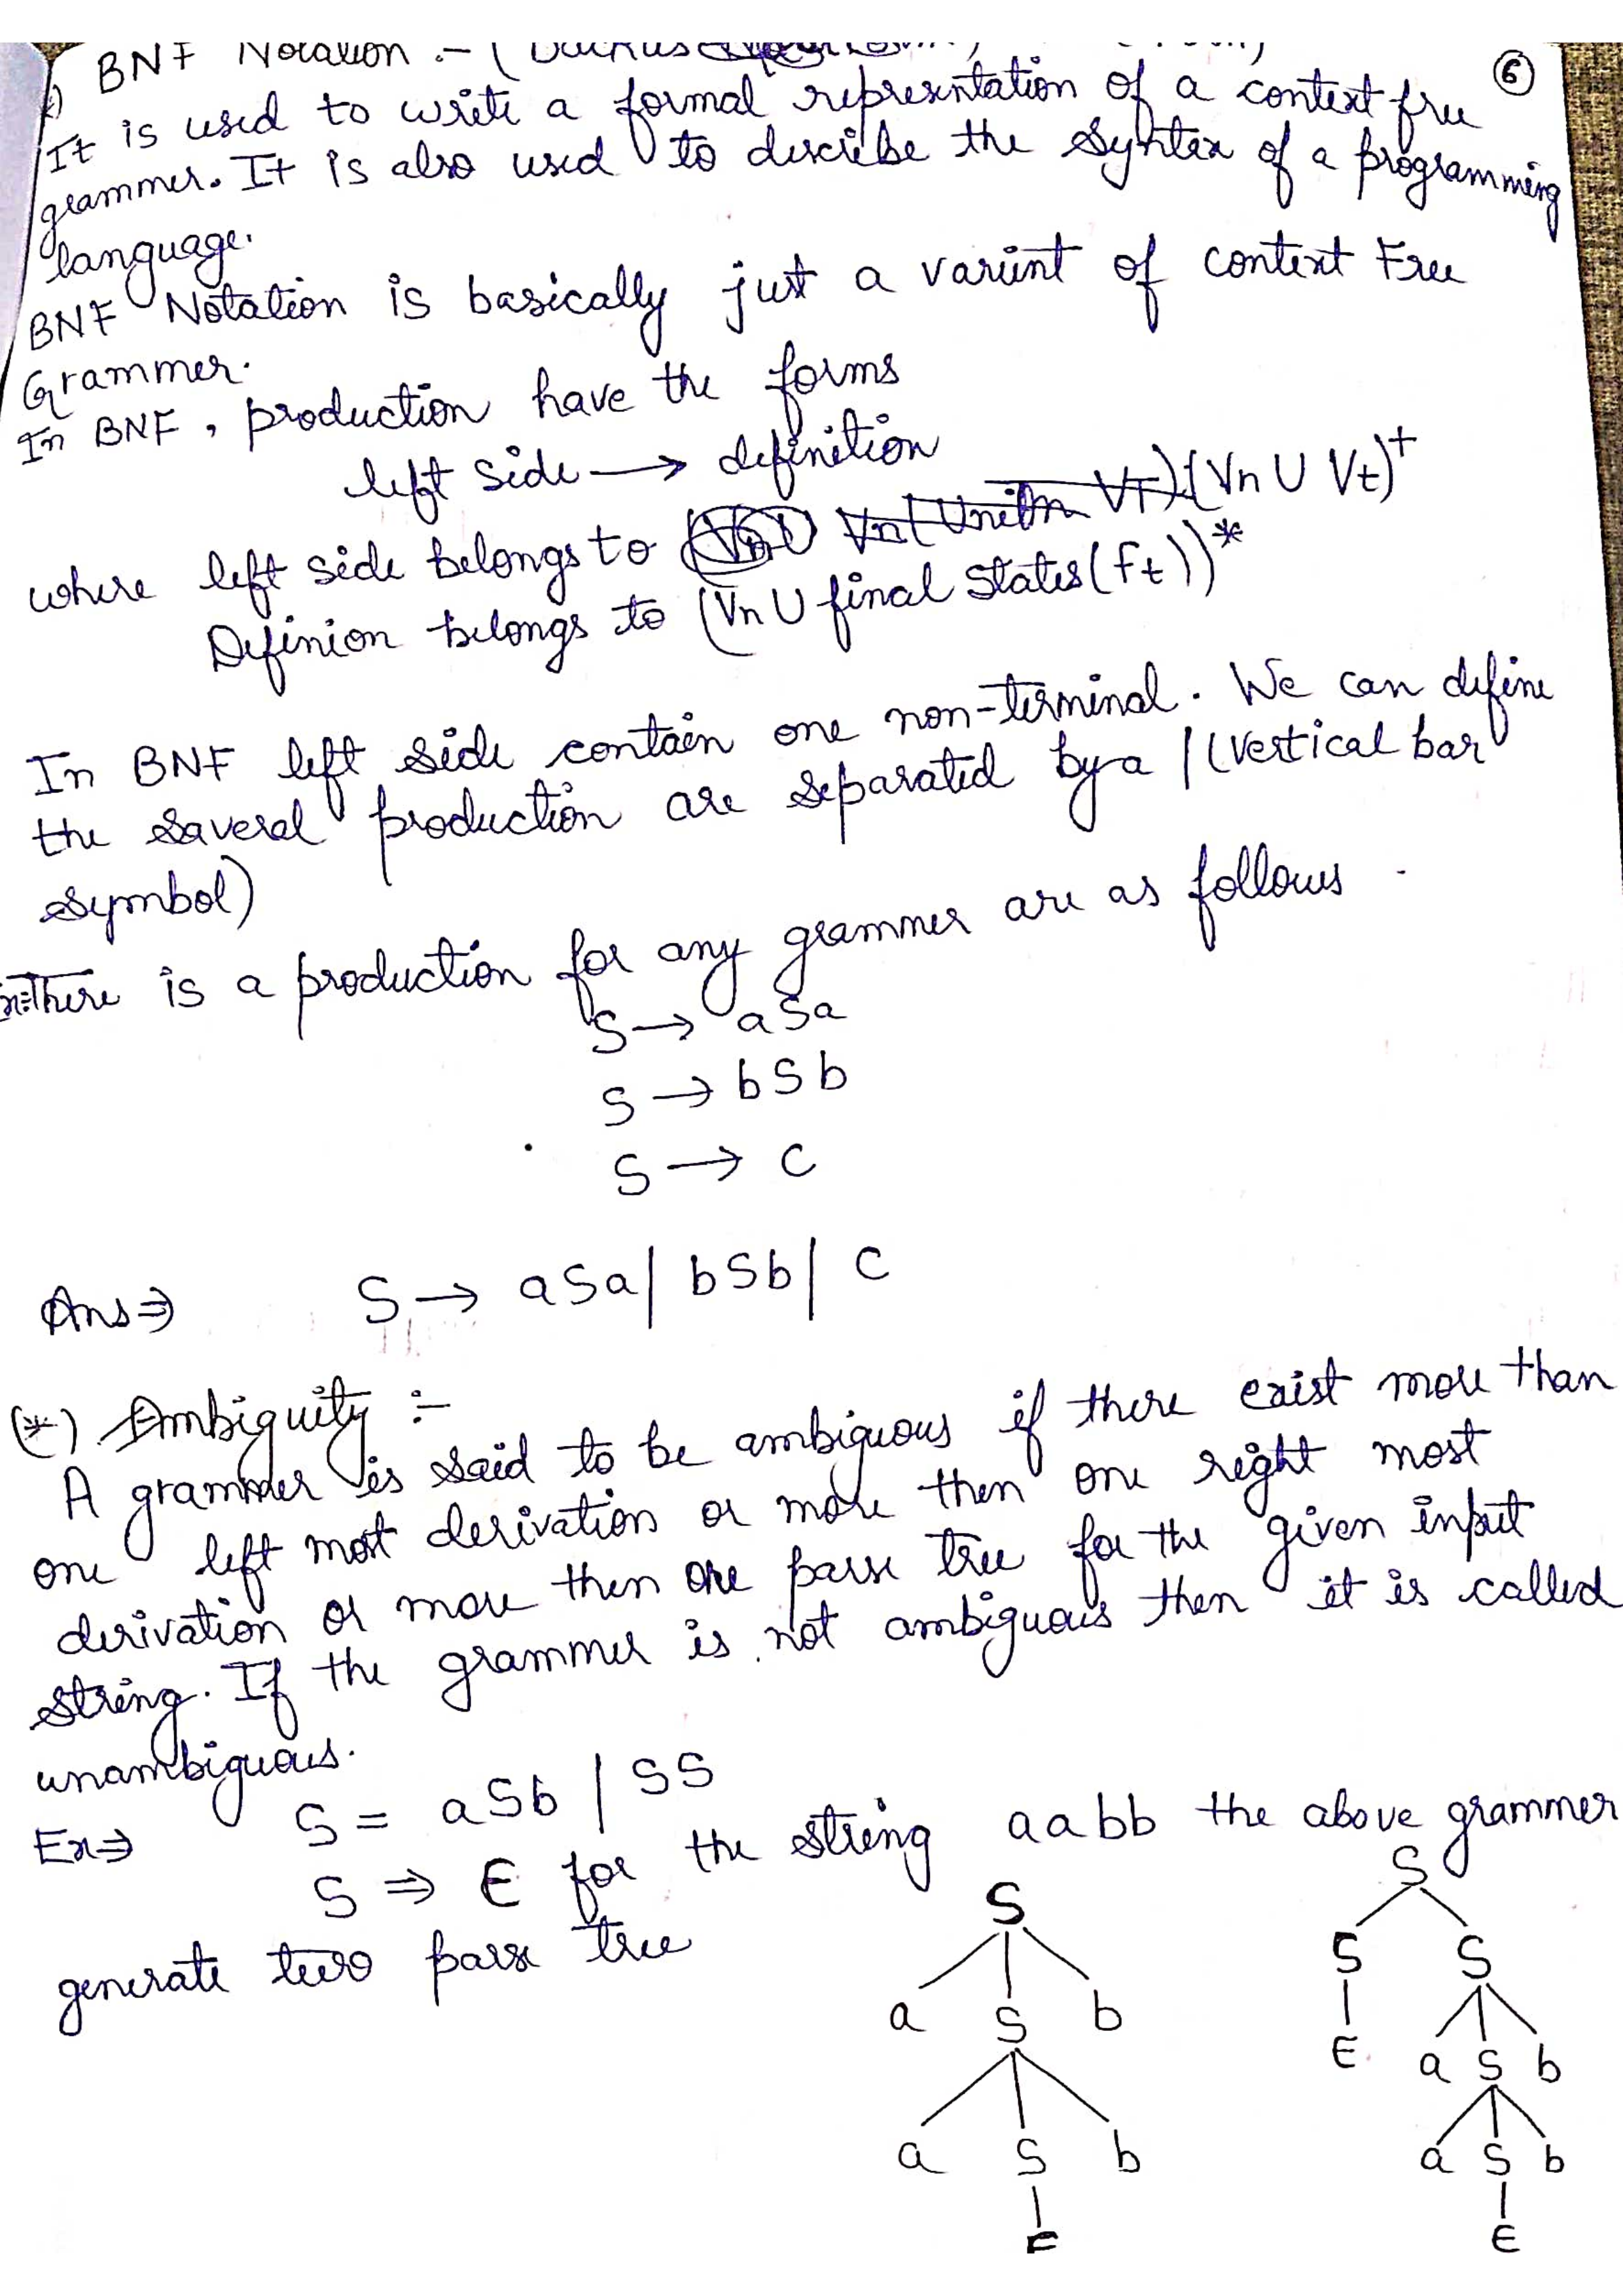 BNF Notation :- ( Backus
⑥
It is used to write a formal represntation of a context free
grammer. It is also used to describe the syntax of a programming
language.
BNF Notation is basically just a varient of context Free
Grammer.
In BNF, production have the forms
left side → definition
where left side belongs to (Vn U Vt)+
Definion belongs to (Vn U final States(Ft))*
In BNF left side contain one non-terminal. We can define
the saveral production are separated by a | (vertical bar
symbol)
There is a production for any grammer are as follows -
S → aSa
S → bSb
S → c
Ans ⇒ S → aSa | bSb | c
(*) Ambiguity :-
A grammer is said to be ambiguous if there exist more than
one left most derivation or more then one right most
derivation or more then one parse tree for the given input
string. If the grammer is not ambiguous then it is called
unambiguous.
Ex ⇒ S = aSb | SS
S ⇒ ∈ for the string aabb the above grammer
generate two parse tree
S
a S b
a S b
∈
S
S S
∈ a S b
a S b
∈